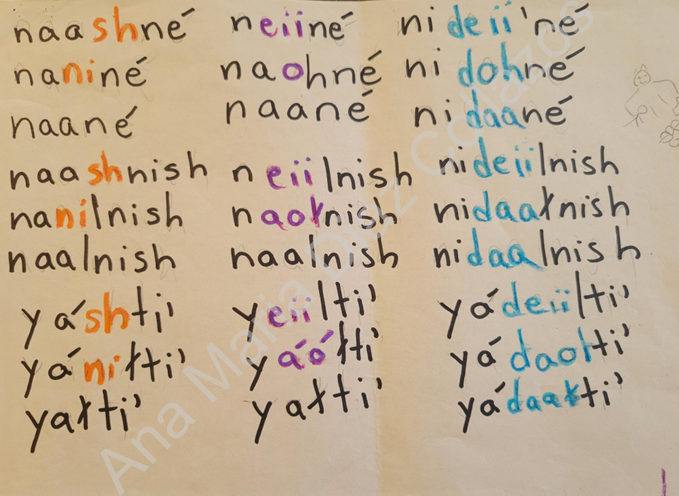 naashné neiiné nideii'né
naniné naohné nidohné
naané naané nidaané
naashnish neiilnish nideiilnish
nanilnish naołnish nidaałnish
naalnish naalnish nidaalnish
yáshti' yeiilti' yádeiilti'
yániłti' yáółti' yádaołti'
yałti' yałti' yádaałti'
Ana Maria Diaz Collazos